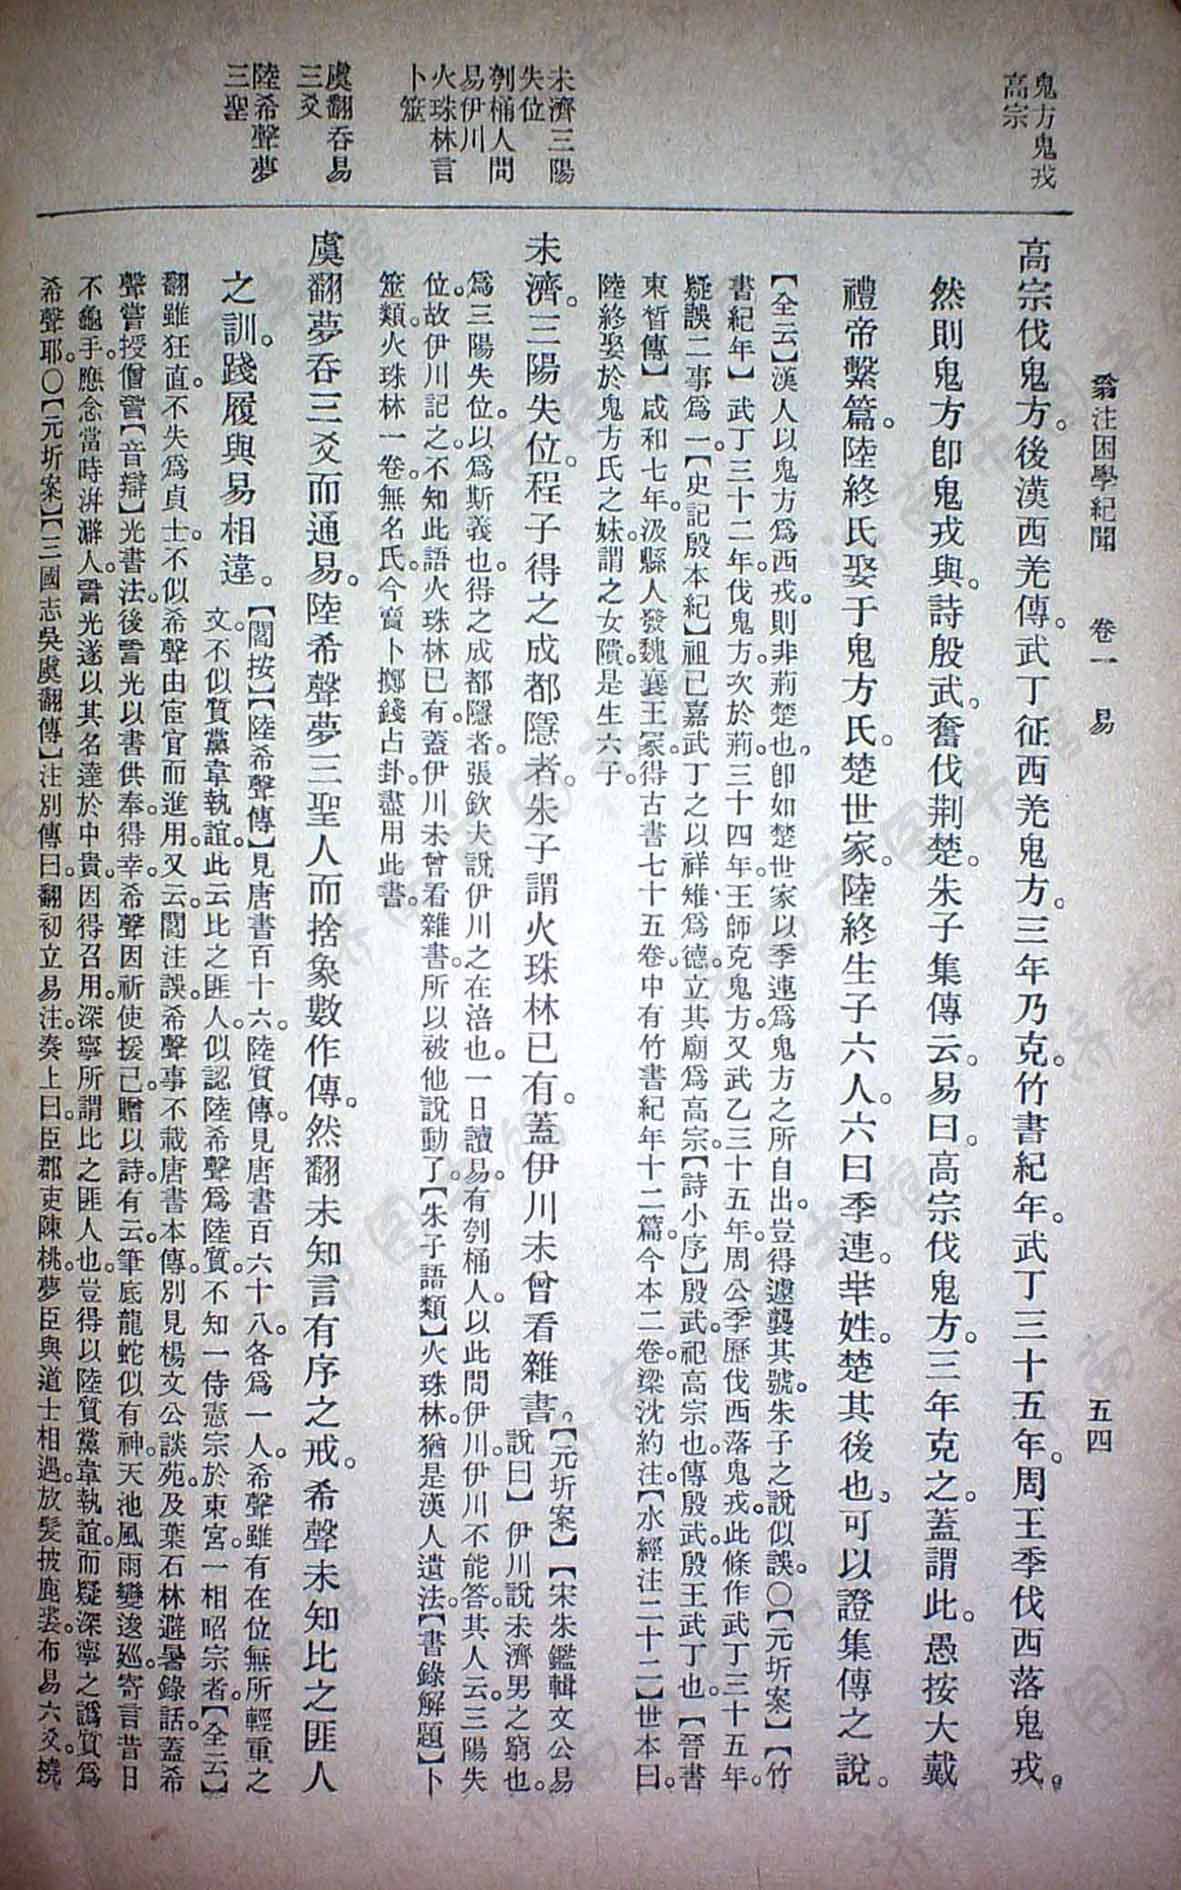 翁注困學紀聞　卷一　易　五四
鬼方鬼戎
高宗
未濟三陽
失位
刳桶人問
易伊川
火珠林言
卜筮
虞翻吞易
三爻
陸希聲夢
三聖
高宗伐鬼方。後漢西羌傳。武丁征西羌鬼方。三年乃克。竹書紀年。武丁三十五年。周王季伐西落鬼戎。
然則鬼方卽鬼戎與。詩殷武。奮伐荆楚。朱子集傳云。易曰。高宗伐鬼方。三年克之。蓋謂此。愚按大戴
禮帝繫篇。陸終氏娶于鬼方氏。楚世家。陸終生子六人。六曰季連。羋姓。楚其後也。可以證集傳之說。
【全云】漢人以鬼方爲西戎。則非荊楚也。卽如楚世家以季連爲鬼方之所自出。豈得遽襲其號。朱子之說似誤。〇【元圻案】【竹
書紀年】武丁三十二年。伐鬼方。次於荊。三十四年。王師克鬼方。又武乙三十五年。周公季歷伐西落鬼戎。此條作武丁三十五年。
疑誤二事爲一。【史記殷本紀】祖己嘉武丁之以祥雉爲德。立其廟爲高宗。【詩小序】殷武。祀高宗也。傳殷武。殷王武丁也。【晉書
東晳傳】咸和七年。汲縣人發魏襄王冢。得古書七十五卷。中有竹書紀年十二篇。今本二卷。梁沈約注。【水經注二十二】世本曰。
陸終娶於鬼方氏之妹。謂之女隤。是生六子。
未濟。三陽失位。程子得之成都隱者。朱子謂火珠林已有。蓋伊川未曾看雜書。【元圻案】【宋朱鑑輯文公易
說曰】伊川說未濟男之窮也。
爲三陽失位。以爲斯義也。得之成都隱者。張欽夫說伊川之在涪也。一日讀易。有刳桶人。以此問伊川。伊川不能答。其人云。三陽失
位。故伊川記之。不知此語火珠林已有。蓋伊川未曾看雜書。所以被他說動了。【朱子語類】火珠林。猶是漢人遺法。【書錄解題】卜
筮類。火珠林一卷。無名氏。今賣卜擲錢占卦。盡用此書。
虞翻夢吞三爻而通易。陸希聲夢三聖人而捨象數作傳。然翻未知言有序之戒。希聲未知比之匪人
之訓。踐履與易相違。【閻按】【陸希聲傳】見唐書百十六。陸質傳。見唐書百六十八。各爲一人。希聲雖有在位無所輕重之
文。不似質黨韋執誼。此云比之匪人。似認陸希聲爲陸質。不知一侍憲宗於東宮。一相昭宗者。【全云】
翻雖狂直。不失爲貞士。不似希聲由宦官而進用。又云。閻注誤。希聲事不載唐書本傳。別見楊文公談苑。及葉石林避暑錄話。蓋希
聲嘗授僧䛒【音辯】光書法。後䛒光以書供奉。得幸。希聲因祈使援己。贈以詩。有云。筆底龍蛇似有神。天池風雨變逡巡。寄言昔日
不龜手。應念當時洴澼人。䛒光遂以其名達於中貴。因得召用。深寧所謂比之匪人也。豈得以陸質黨韋執誼。而疑深寧之譌質爲
希聲耶。〇【元圻案】【三國志吳虞翻傳】注別傳曰。翻初立易注。奏上曰。臣郡吏陳桃。夢臣與道士相遇。放髮披鹿裘。布易六爻。撓